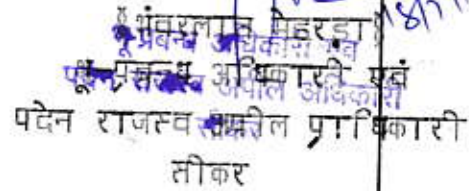 ॥भंवरलाल मेहरड़ा॥
भू प्रबन्ध अधिकारी एवं
भू-प्रबन्ध अधिकारी एवं
पदेन राजस्व अपील अधिकारी
पदेन राजस्व अपील प्राधिकारी
सीकर